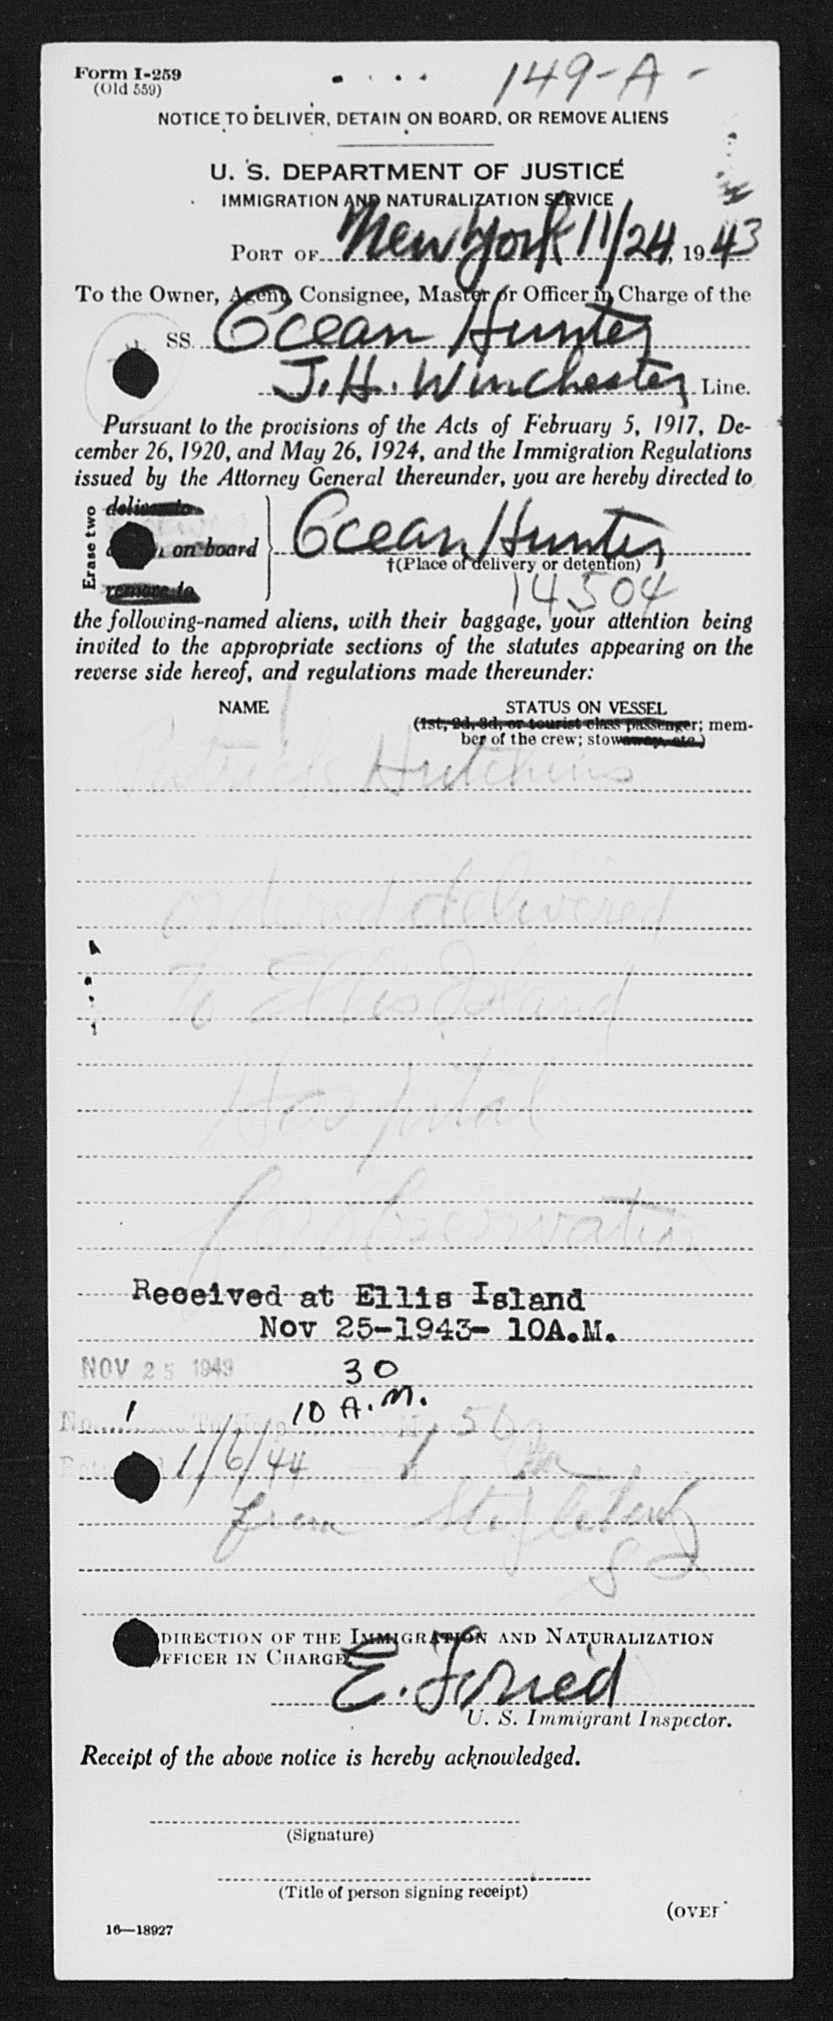 Form I-259
(Old 559)
149-A-
NOTICE TO DELIVER, DETAIN ON BOARD, OR REMOVE ALIENS
U. S. DEPARTMENT OF JUSTICE
IMMIGRATION AND NATURALIZATION SERVICE
PORT OF New York 11/24, 1943
To the Owner, Agent, Consignee, Master or Officer in Charge of the
SS. Ocean Hunter
J. H. Winchester Line.
Pursuant to the provisions of the Acts of February 5, 1917, De-
cember 26, 1920, and May 26, 1924, and the Immigration Regulations
issued by the Attorney General thereunder, you are hereby directed to
Erase two
deliver to
on board Ocean Hunter
†(Place of delivery or detention)
remove to 14504
the following-named aliens, with their baggage, your attention being
invited to the appropriate sections of the statutes appearing on the
reverse side hereof, and regulations made thereunder:
NAME STATUS ON VESSEL
(1st, 2d, 3d, or tourist class passenger; mem-
ber of the crew; stowaway, etc.)
Patrick Hutchins
ordered delivered
to Ellis Island
Hospital
for Observation
Received at Ellis Island
Nov 25-1943- 10A.M.
NOV 25 1943 30
No. 1 To Hosp. 10 A.M.
1/6/44 1 50 Pm
from Stapleton
DIRECTION OF THE IMMIGRATION AND NATURALIZATION
OFFICER IN CHARGE
E.
U. S. Immigrant Inspector.
Receipt of the above notice is hereby acknowledged.
(Signature)
(Title of person signing receipt)
(OVER
16—18927